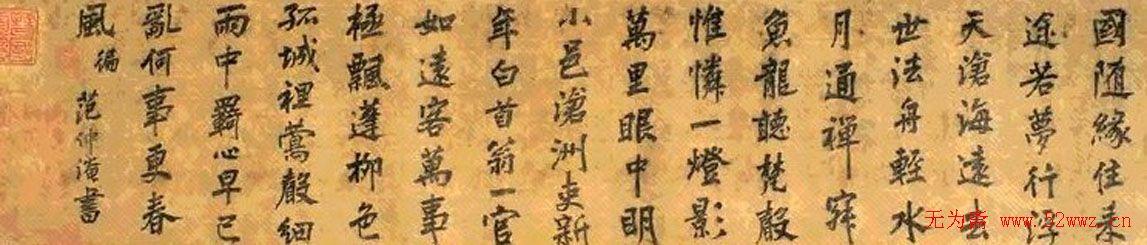 國随緣住来
途若夢行浮
天滄海遠去
世法舟輕水
月通禅寂
魚龍聽梵聲
惟憐一燈影
萬里眼中明
小邑滄洲吏新
年白首翁一官
如遠客萬事
極飄蓬柳色
孤城裡鶯聲細
雨中羇心早已
亂何事更春
風 范仲書
无为斋 www.52wwz.cn